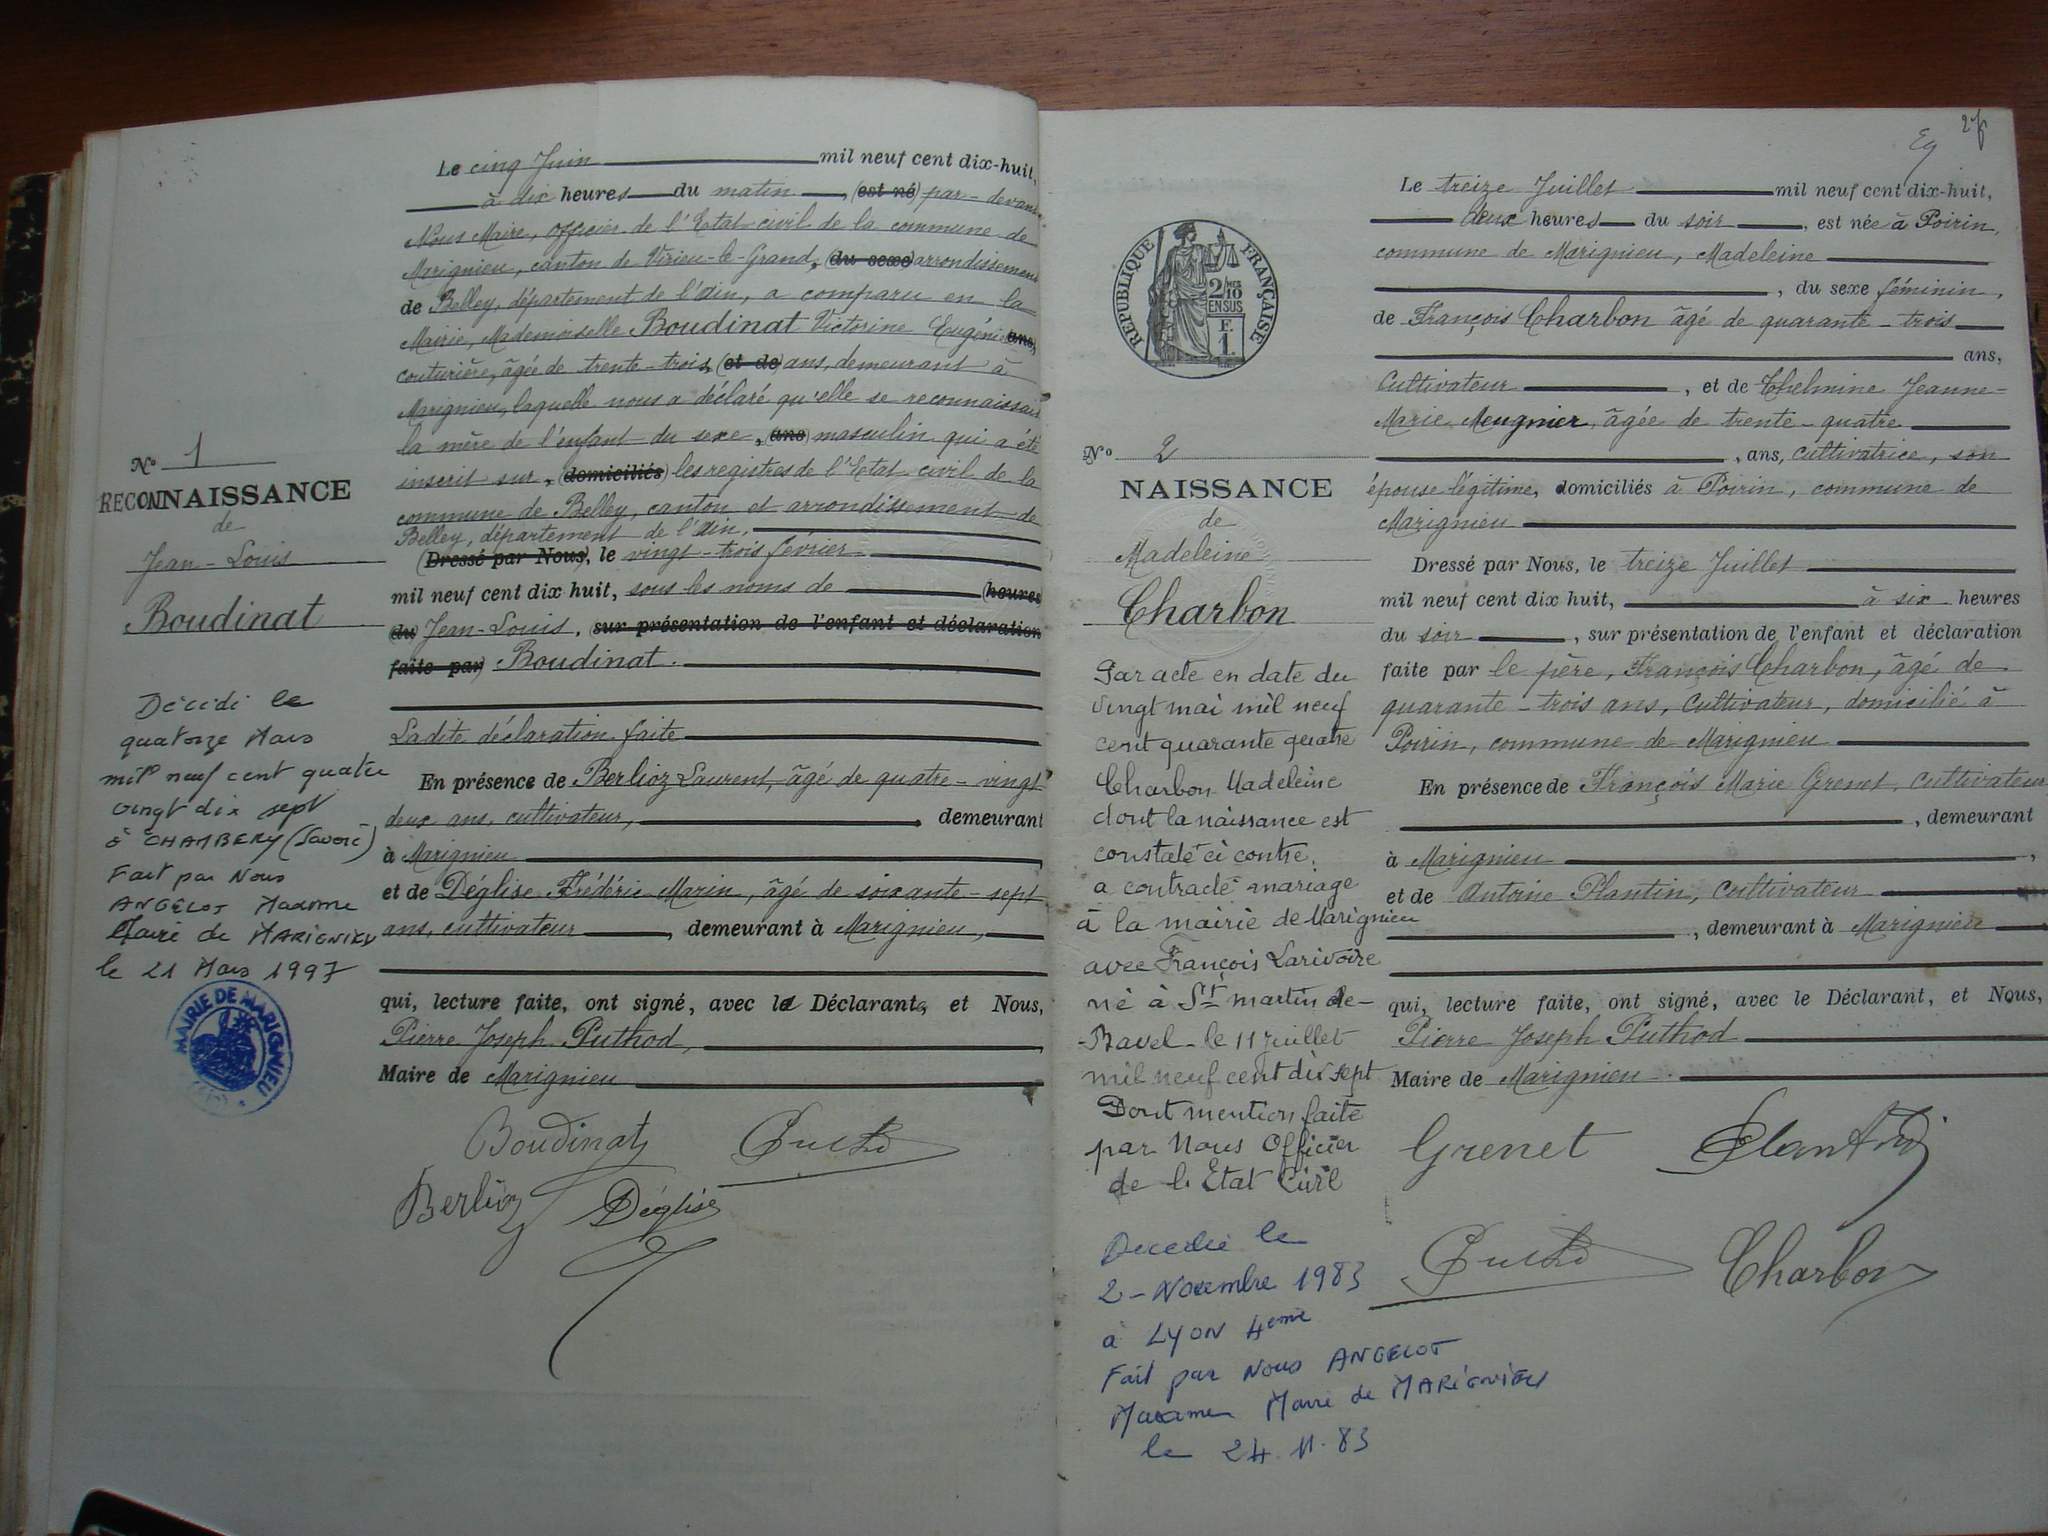 Le cinq Juin mil neuf cent dix-huit,
à dix heures du matin, (est né) par-devant
Nous Maire, officier de l'Etat civil de la commune de
Marignieu, canton de Virieu-le-Grand, (du sexe) arrondissement
de Belley, département de l'Ain, a comparu en la
Mairie, Mademoiselle Boudinat Victorine Eugénie ans,
couturière, âgée de trente-trois, (et de) ans, demeurant à
Marignieu, laquelle nous a déclaré qu'elle se reconnaissait
la mère de l'enfant du sexe, (ans) masculin qui a été
inscrit sur, (domiciliés) les registres de l'Etat civil de la
commune de Belley, canton et arrondissement de
Belley, département de l'Ain.
(Dressé par Nous), le vingt-trois février
mil neuf cent dix huit, sous les noms de (heures
du) Jean-Louis, (sur présentation de l'enfant et déclaration
faite par) Boudinat.
Ladite déclaration faite
En présence de Berlioz Laurent, âgé de quatre-vingt
deux ans, cultivateur, demeurant
à Marignieu
et de Déglise Frédéric Marin, âgé de soixante-sept
ans, cultivateur, demeurant à Marignieu,
qui, lecture faite, ont signé, avec la Déclarante, et Nous,
Pierre Joseph Puthod,
Maire de Marignieu
Boudinat
Berlioz Déglise
N° 1
RECONNAISSANCE
de
Jean-Louis
Boudinat
Décédé le
quatorze Mars
mil neuf cent quatre
vingt dix sept
à CHAMBERY (Savoie)
Fait par Nous
ANGELOT Maxime
Maire de MARIGNIEU
le 21 Mars 1997
MAIRIE DE MARIGNIEU
RÉPUBLIQUE FRANÇAISE
2/10
EN SUS
F.
1.
N° 2
NAISSANCE
de
Madeleine
Charbon
Par acte en date du
vingt mai mil neuf
cent quarante quatre
Charbon Madeleine
dont la naissance est
constaté ci contre,
a contracté mariage
à la mairie de Marignieu
avec François Larivoire
né à St martin de-
-Bavel-le 11 juillet
mil neuf cent dix sept
Dont mention faite
par Nous Officier
de l. Etat Civil
Decedée le
2-Novembre 1983
à LYON 4eme
Fait par Nous ANGELOT
Maxime Maire de MARIGNIEU
le 24.11.83
Le treize Juillet mil neuf cent dix-huit,
deux heures du soir, est née à Poirin,
commune de Marignieu, Madeleine
, du sexe féminin,
de François Charbon âgé de quarante-trois
ans,
Cultivateur, et de Thelmine Jeanne-
Marie Meugnier, âgée de trente-quatre
, ans, cultivatrice, son
épouse légitime, domiciliés à Poirin, commune de
Marignieu
Dressé par Nous, le treize Juillet
mil neuf cent dix huit, à six heures
du soir, sur présentation de l'enfant et déclaration
faite par le père, François Charbon, âgé de
quarante-trois ans, Cultivateur, domicilié à
Poirin, commune de Marignieu
En présence de François Marie Grenet, cultivateur
, demeurant
à Marignieu,
et de Antoine Plantin, cultivateur
, demeurant à Marignieu
qui, lecture faite, ont signé, avec le Déclarant, et Nous,
Pierre Joseph Puthod
Maire de Marignieu.
Grenet Plantin
Charbon